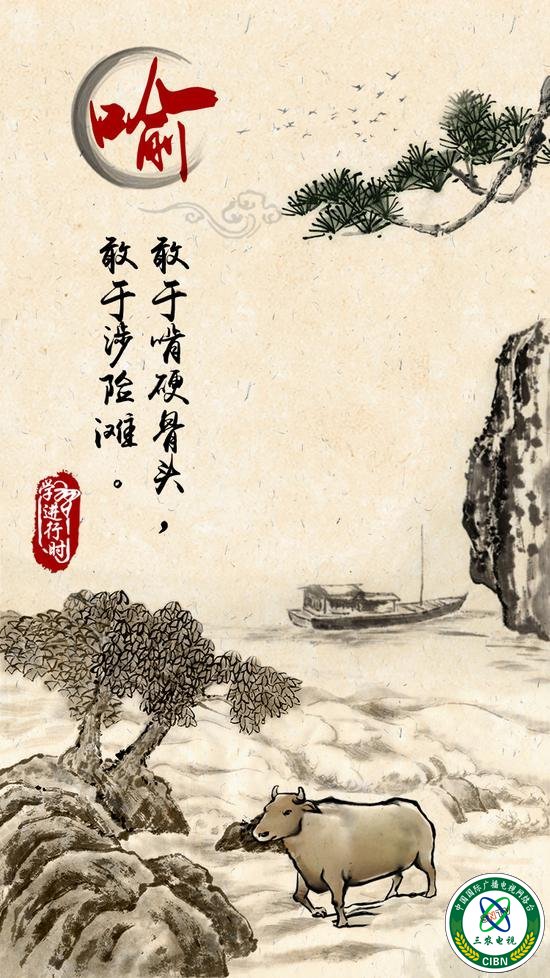 喻
敢于啃硬骨头，
敢于涉险滩。
学习进行时
中国国际广播电视网络台
三农电视
CIBN